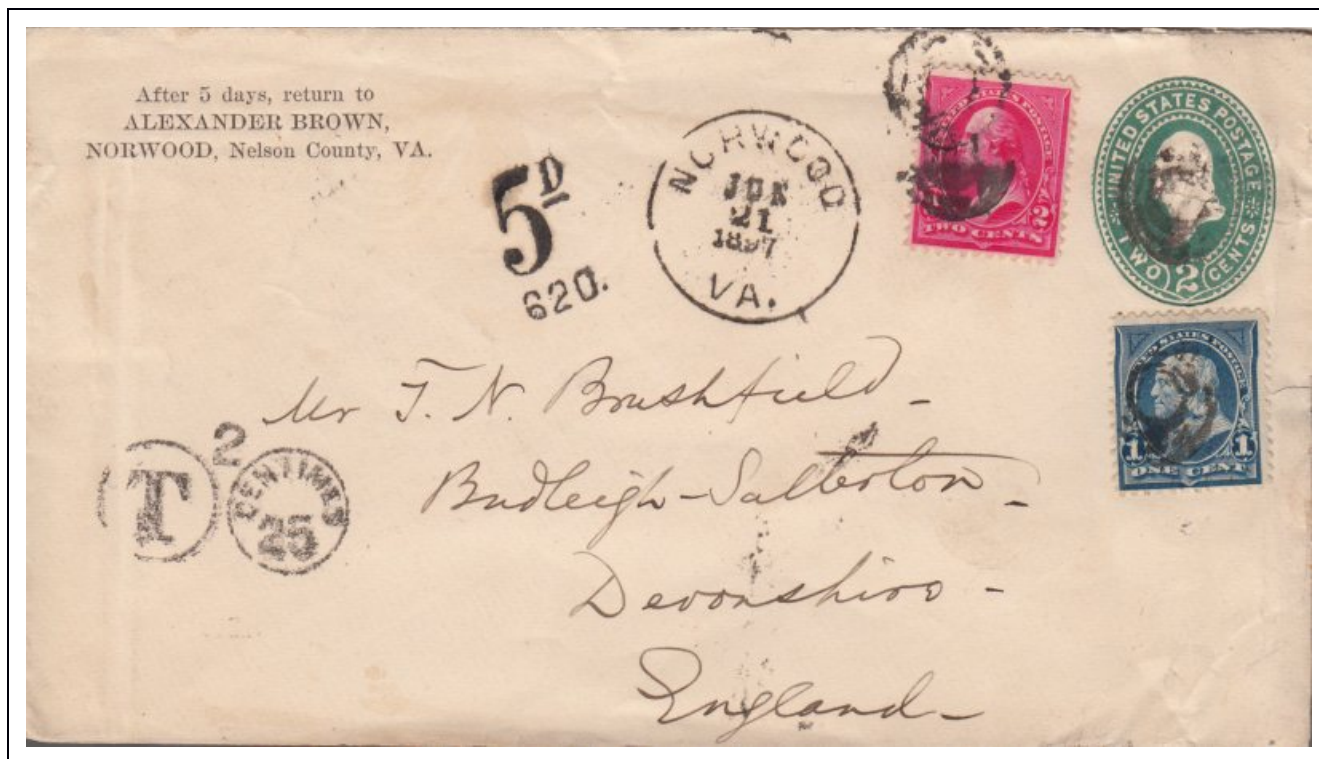 After 5 days, return to
ALEXANDER BROWN,
NORWOOD, Nelson County, VA.
5D
620.
NORWOOD
JUN
21
1897
VA.
UNITED STATES POSTAGE
TWO CENTS 2
UNITED STATES POSTAGE
TWO 2 CENTS
UNITED STATES POSTAGE
1 1
ONE CENT
Mr T. N. Brushfield -
Budleigh - Salterton -
Devonshire -
England -
T
2
CENTIMES
25